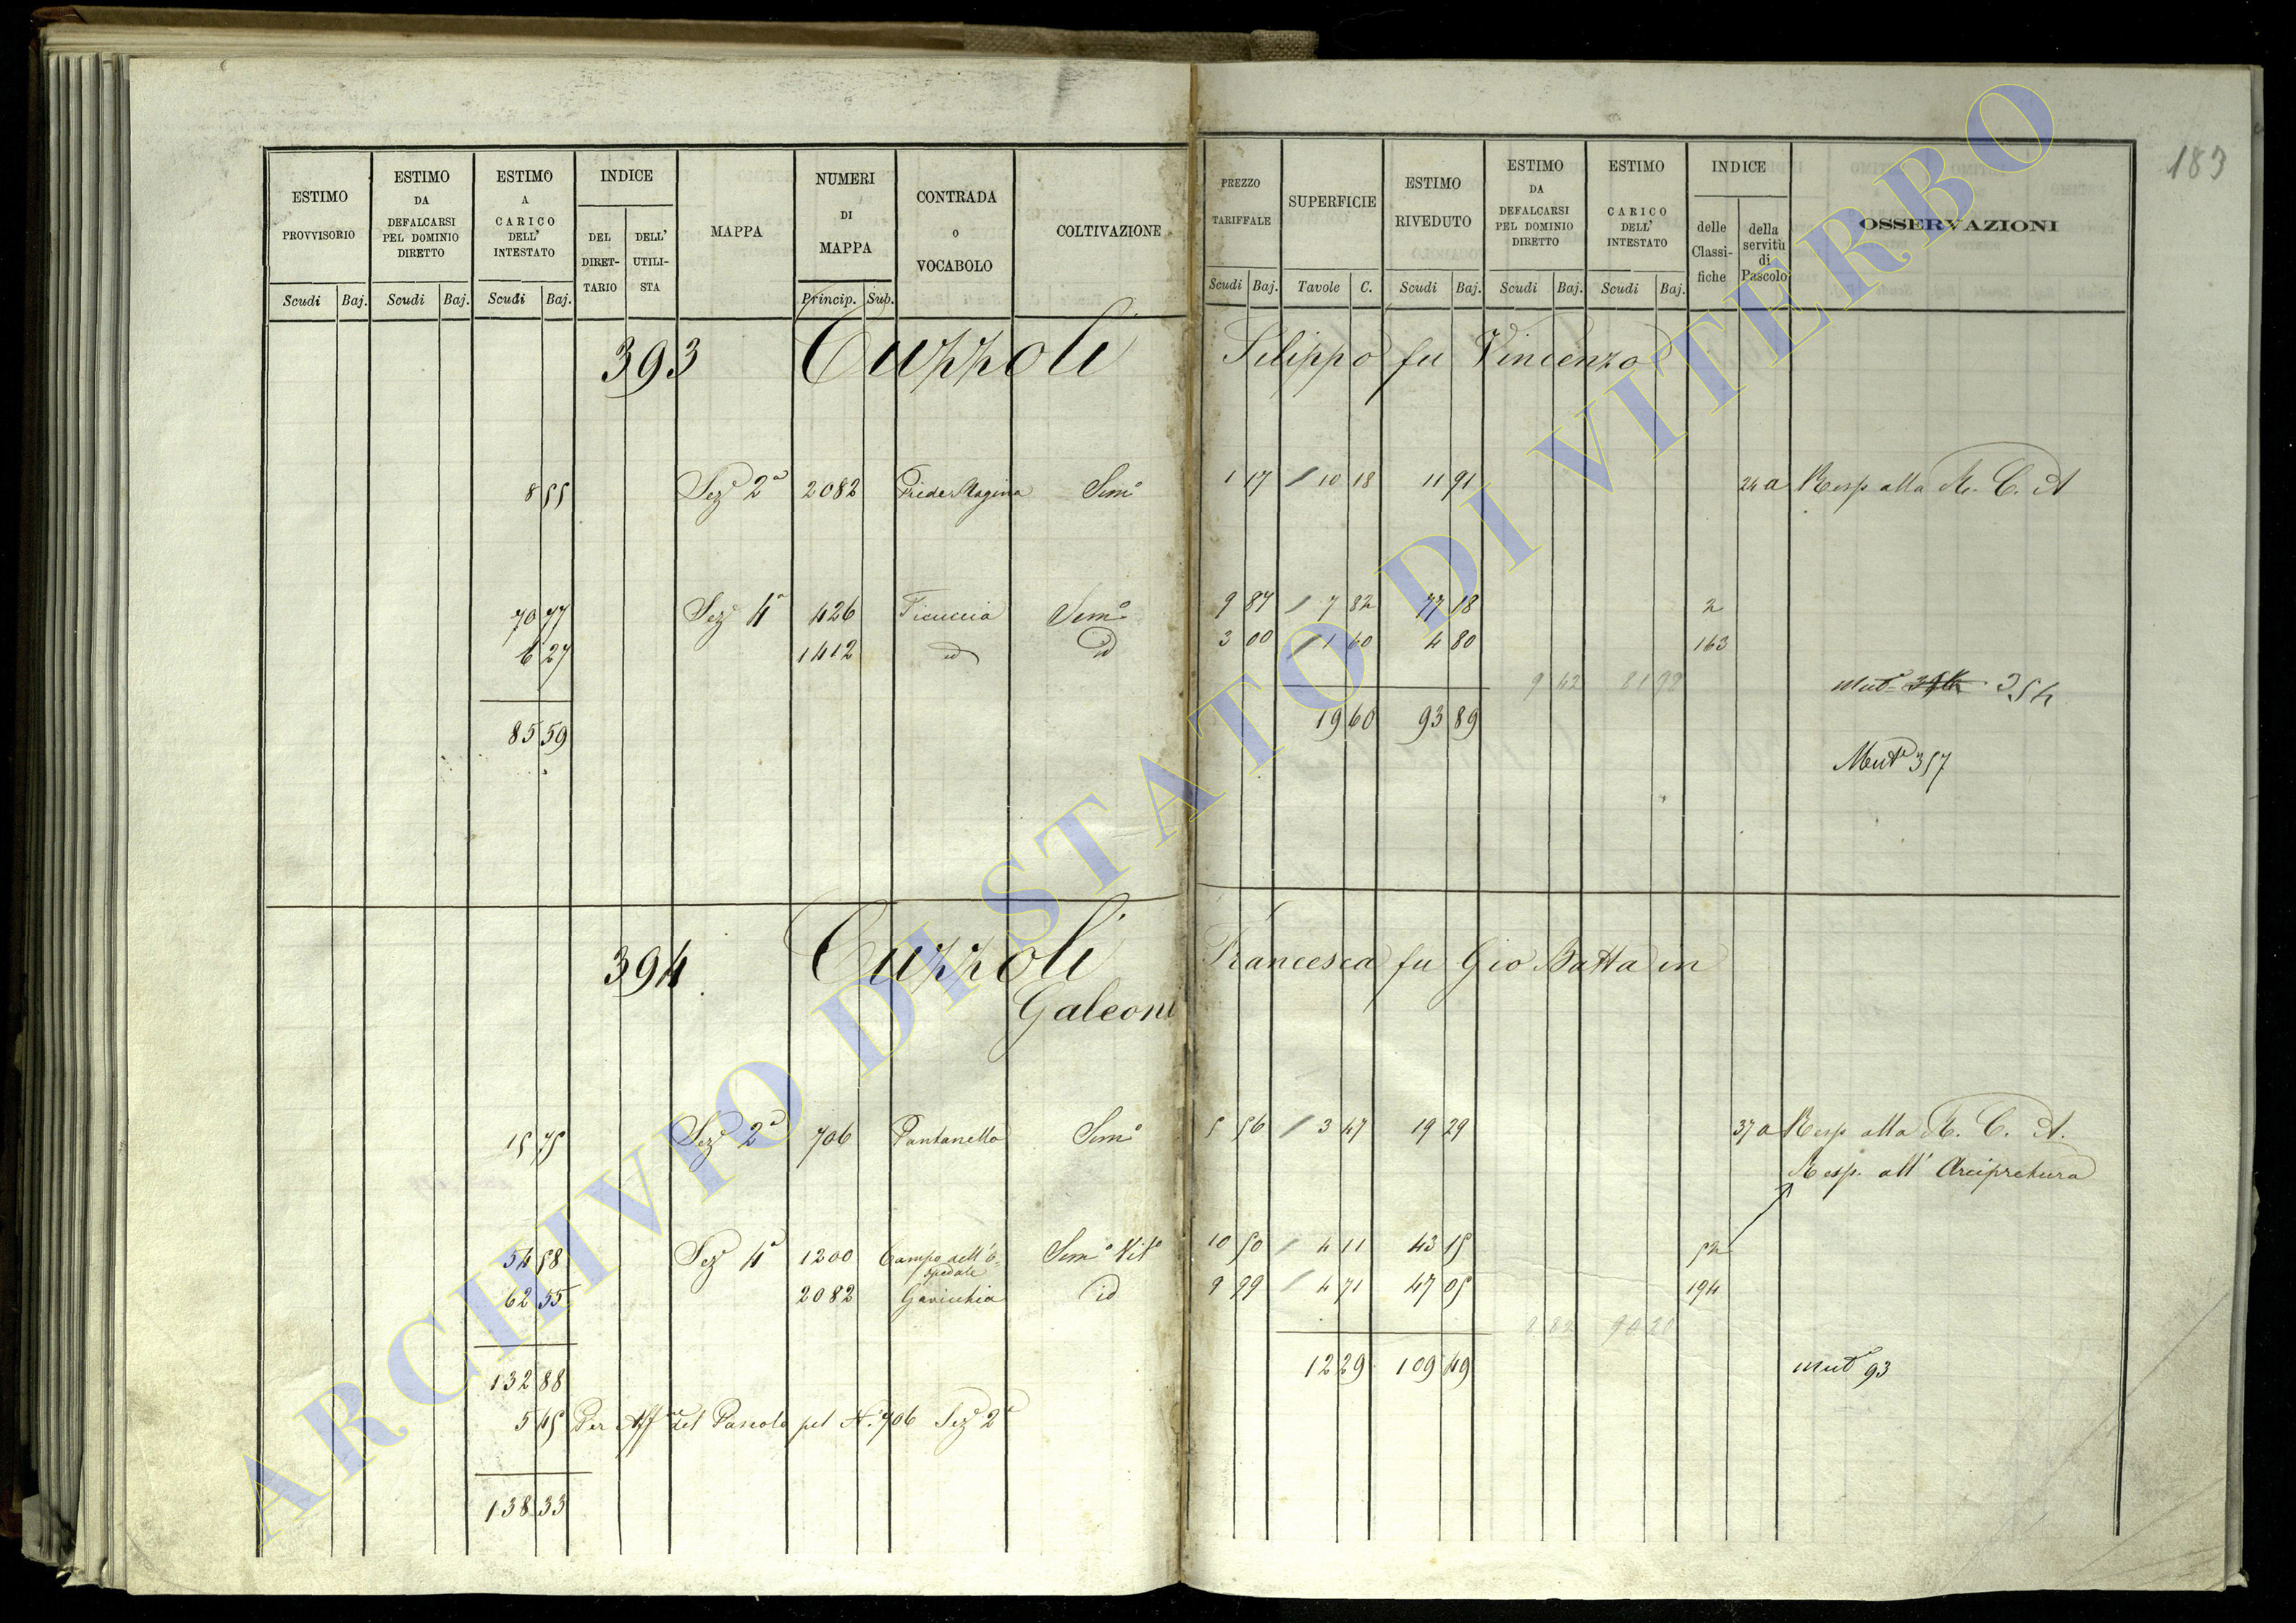 183
ESTIMO PROVVISORIO Scudi Baj.
ESTIMO DA DEFALCARSI PEL DOMINIO DIRETTO Scudi Baj.
ESTIMO A CARICO DELL' INTESTATO Scudi Baj.
INDICE DEL DIRETTARIO DELL' UTILISTA
MAPPA
NUMERI DI MAPPA Princip. Sub.
CONTRADA o VOCABOLO
COLTIVAZIONE
PREZZO TARIFFALE Scudi Baj.
SUPERFICIE Tavole C.
ESTIMO RIVEDUTO Scudi Baj.
ESTIMO DA DEFALCARSI PEL DOMINIO DIRETTO Scudi Baj.
ESTIMO A CARICO DELL' INTESTATO Scudi Baj.
INDICE delle Classifiche della servitù di Pascolo
OSSERVAZIONI
393 Cuzzoli Filippo fu Vincenzo
8 55 Sez.e 2a 2082 Sem.o 1 17 10 18 11 91 24 a Resp alla R. C. A
70 77 Sez.e 4a 426 Ficuccia Sem.o 9 87 7 82 77 18 2
6 27 1412 id id 3 00 1 60 4 80 163
9 42 81 98 Mut.e 354
85 59 19 60 93 89
Mut.e 357
394 Cuzzoli Francesca fu Gio Batta in
Galeoni
15 75 Sez.e 2a 706 Pantanella Sem.o 5 56 3 47 19 29 37 a Resp alla R. C. A.
Resp. all' Arcipretura
54 58 Sez.e 4a 1200 Campo dell'O-
spedale Sem.o Vit.o 10 50 4 11 43 15 52
62 55 2082 Gavicchia id 9 99 4 71 47 05 194
132 88 12 29 109 49 Mut.e 93
5 45 Per Aff.ne del Pascolo pel N. 706 Sez.e 2a
138 33
ARCHIVIO DI STATO DI VITERBO